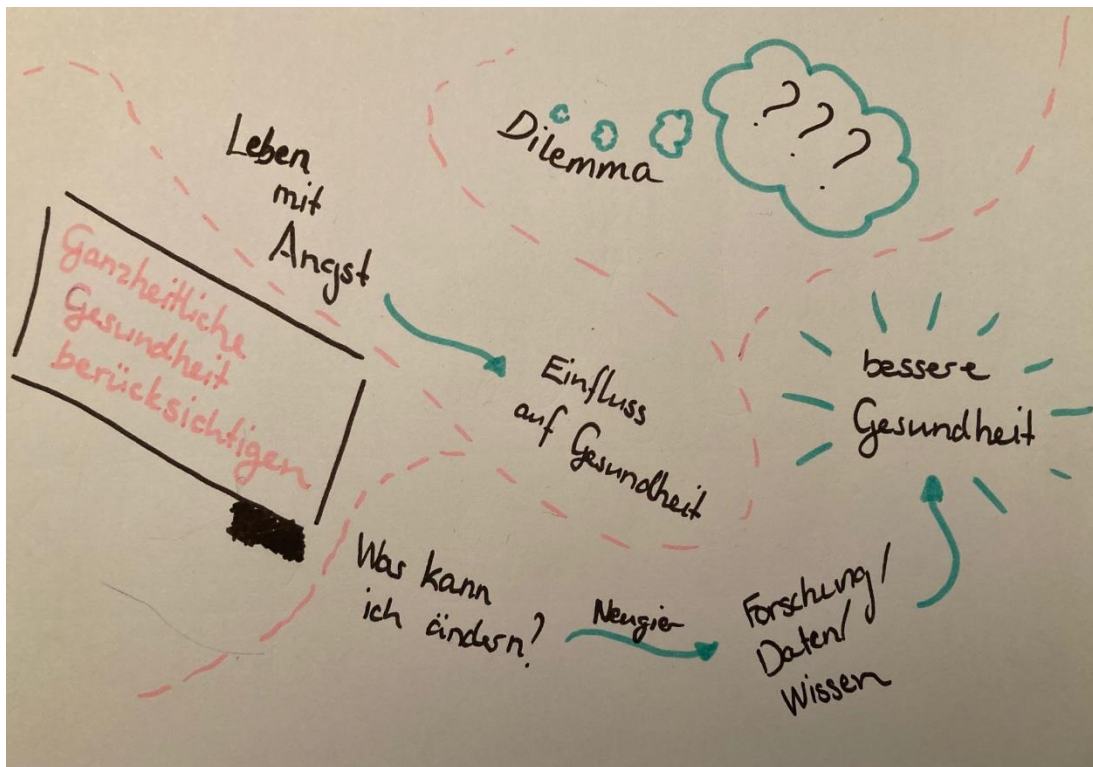 Dilemma
? ? ?
Leben
mit
Angst
Ganzheitliche
Gesundheit
berücksichtigen
Einfluss
auf Gesundheit
bessere
Gesundheit
Was kann
ich ändern?
Neugier
Forschung/
Daten/
Wissen